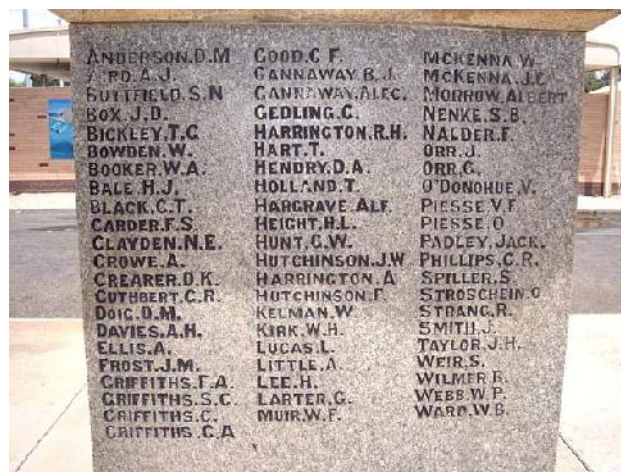 ANDERSON.D.M
A.J.
BUTTFIELD.S.N
BOX.J.D.
BICKLEY.T.C
BOWDEN.W.
BOOKER.W.A.
BALE.H.J.
BLACK.C.T.
CARDER.F.S.
CLAYDEN.N.E.
CROWE.A.
CREARER.D.K.
CUTHBERT.C.R.
DOIG.D.M.
DAVIES.A.H.
ELLIS.A.
FROST.J.M.
GRIFFITHS.F.A.
GRIFFITHS.S.G.
GRIFFITHS.C.
GRIFFITHS.C.A
GOOD.C.F.
GANNAWAY.B.J.
GANNAWAY.ALEC.
GEDLING.C.
HARRINGTON.R.H.
HART.T.
HENDRY.D.A.
HOLLAND.T.
HARGRAVE.ALF.
HEIGHT.H.L.
HUNT.C.W.
HUTCHINSON.J.W
HARRINGTON.A
HUTCHINSON.F.
KELMAN.W
KIRK.W.H.
LUCAS.L.
LITTLE.A.
LEE.H.
LARTER.G.
MUIR.W.F.
MCKENNA.W.
MCKENNA.J.C.
MORROW.ALBERT
NENKE.S.B.
NALDER.F.
ORR.J.
ORR.G.
O'DONOHUE.V.
PIESSE.V.F.
PIESSE.O
PADLEY.JACK.
PHILLIPS.C.R.
SPILLER.S.
STROSCHEIN.O
STRANG.R.
SMITH.J.
TAYLOR.J.H.
WEIR.S.
WILMER.R.
WEBB.W.P.
WARD.W.B.